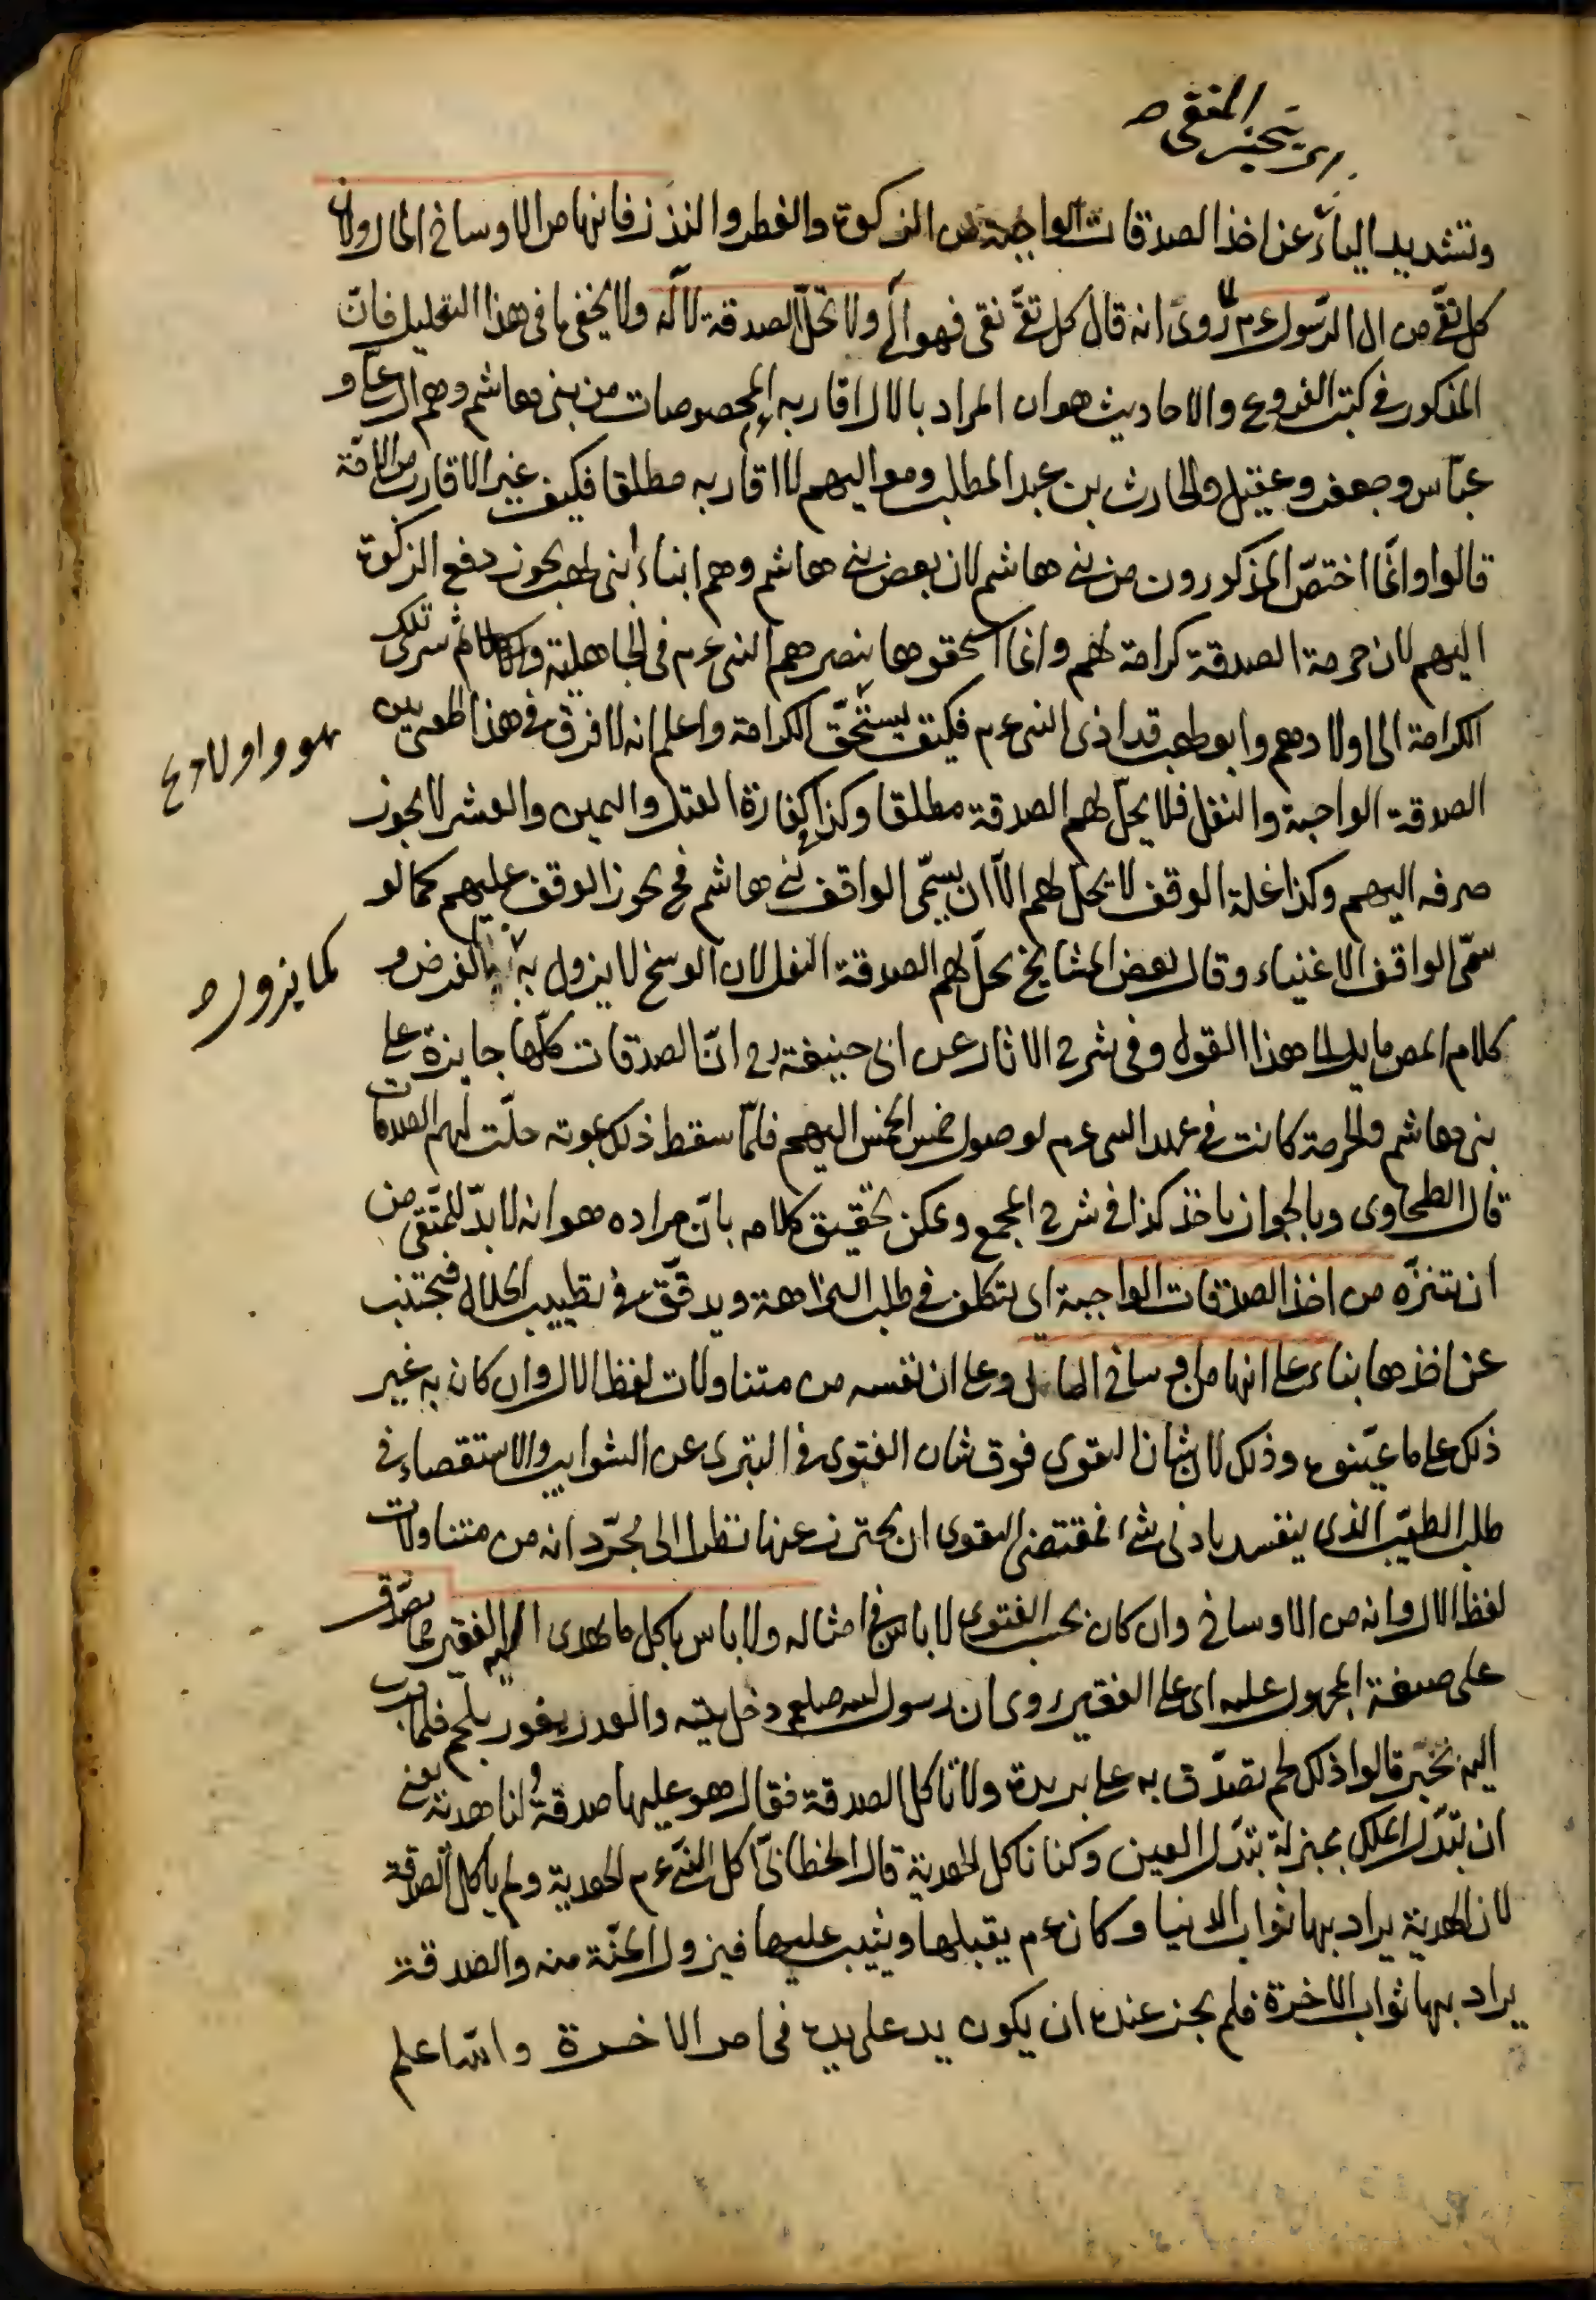 اى يتحنز المتقى صح
وتشديد الياء عن اخذ الصدقات الواجبة من الزكوة والفطر والنذر فانها من الاوساخ المال ولان
كل تقى من ال الرسول عم لما روى انه قال كل تقى نقى فهو آلى ولا تحل الصدقة لآله ولا يخفى ما فى هذا التعليل فان
المذكور فى كتب الفروع والاحاديث هو ان المراد بالال اقاربه المخصوصات من بنى هاشم وهم ال على و
عباس وجعفر وعقيل والحارث بن عبد المطلب ومواليهم لا اقاربه مطلقا فكيف غير الاقارب من الامة
قالوا وانما اختص المذكورون من بنى هاشم لان بعض بنى هاشم وهم ابناء ابى لهب يجوز دفع الزكوة
اليهم لان حرمة الصدقة كرامة لهم وانما استحقوها بنصرهم النبى عم فى الجاهلية والاسلام ثم سرى تلك
الكرامة الى اولادهم وابو لهب قد اذى النبى عم فكيف يستحق الكرامة واعلم انه لا فرق فى هذا المعنى بين
هو واولاده صح
الصدقة الواجبة والنفل فلا يحل لهم الصدقة مطلقا وكذا كفارة القتل واليمين والعشر لا يجوز
صرفه اليهم وكذا غلة الوقف لا يحل لهم الا ان يسمى الواقف بنى هاشم فح يجوز الوقف عليهم كما لو
سمى الواقف الاغنياء وقال بعض المشايخ يحل لهم الصدقة النفل لان الوسخ لا يزول به بالفرض و
كما يزول صح
كلام المص مايل الى هذا القول وفى شرح الاثار عن ابى حنيفة رح ان الصدقات كلها جايزة على
بنى هاشم والحرمة كانت فى عهد النبى عم لوصول خمس الخمس اليهم فلما سقط ذلك بموته حلت لهم الصدقات
قال الطحاوى وبالجواز ناخذ كذا فى شرح المجمع ويمكن تحقيق كلامه بان مراده هو انه لا بد للمتقى من
ان يتنزه من اخذ الصدقات الواجبة اى يتكلف فى طلب النزاهة ويدقق فى تطييب الحلال فيجتنب
عن اخذها بناء على انها من اوساخ المال وعلى ان نفسه من متناولات لفظ الال وان كان به غير
ذلك على ما عينوه وذلك لان شان التقوى فوق شان الفتوى فى التبرى عن الشوايب والاستقصاء فى
طلب الطيب الذى ينفسد بادنى شئ فمقتضى التقوى ان يحترز عنها نظرا الى مجرد انه من متناولات
لفظ الال وانه من الاوساخ وان كان بحسب الفتوى لا باس فى امثاله ولا باس باكل ما اهدى اليه الفقير مما تصدق
على صيغة المجهول عليه اى على الفقير روى ان رسول الله صلعم دخل بيته والقدر يفور بلحم فلما قرب
اليه تخبر قالوا ذلك لحم تصدق به على بريدة ولا تاكل الصدقة فقال هو عليها صدقة ولنا هدية يعنى
ان تبدل الملك بمنزلة تبدل العين وكنا ناكل الهدية قال الخطابى اكل النبى عم الهدية ولم ياكل الصدقة
لان الهدية يراد بها ثواب الدنيا وكان عم يقبلها ويثيب عليها فيزول المنة منه والصدقة
يراد بها ثواب الاخرة فلم يجز عنده ان يكون يد على يده فى امر الاخرة والله اعلم